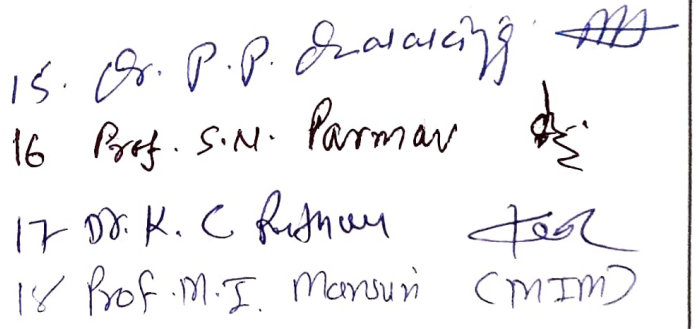 15. Dr. P. P.
16 Prof. S.N. Parmar
17 Dr. K. C
18 Prof. M. I. Mansuri (MIM)